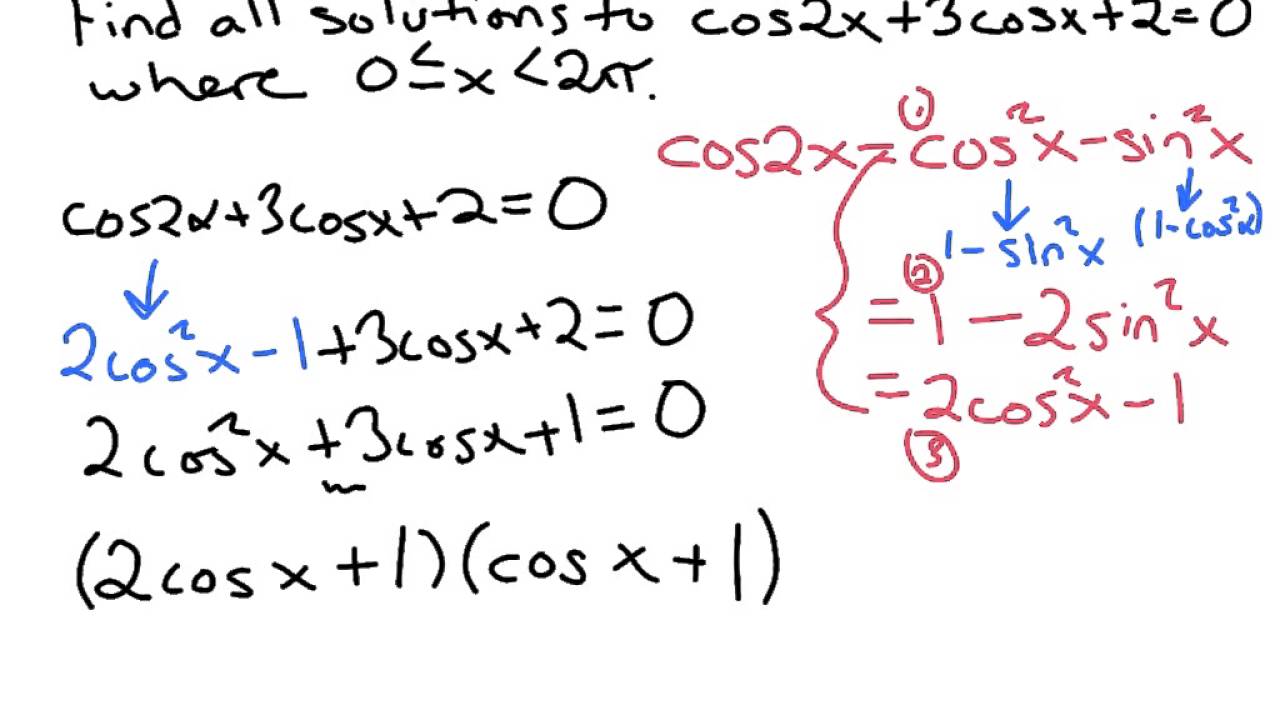 Find all solutions to cos2x+3cosx+2=0
where 0≤x<2π.
cos2x+3cosx+2=0
2cos²x-1+3cosx+2=0
2cos²x+3cosx+1=0
(2cosx+1)(cosx+1)
①
cos2x=cos²x-sin²x
1-sin²x (1-cos²x)
②
=1-2sin²x
=2cos²x-1
③